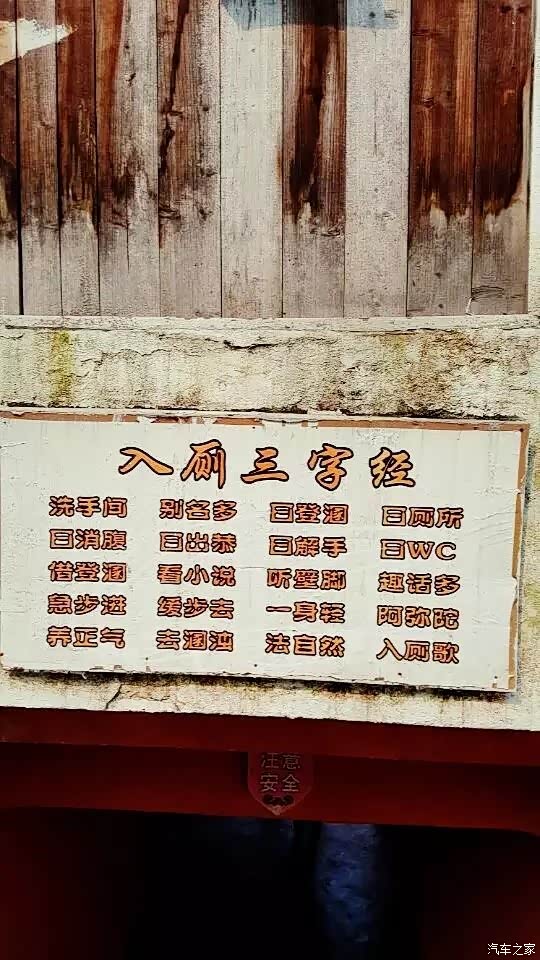 入厕三字经
洗手间 别名多 曰登溷 曰厕所
曰消腹 曰出恭 曰解手 曰WC
借登溷 看小说 听壁脚 趣话多
急步进 缓步去 一身轻 阿弥陀
养正气 去溷浊 法自然 入厕歌
注意
安全
汽车之家